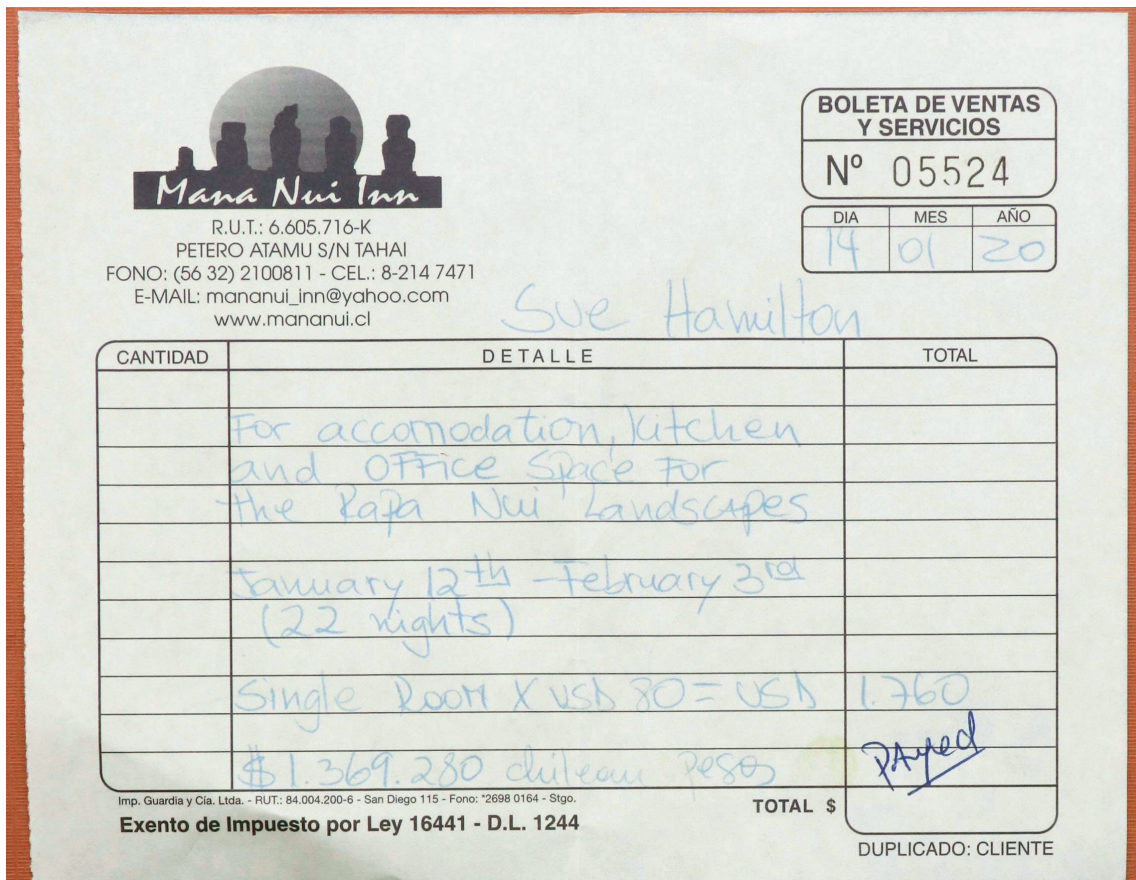 Mana Nui Inn
R.U.T.: 6.605.716-K
PETERO ATAMU S/N TAHAI
FONO: (56 32) 2100811 - CEL.: 8-214 7471
E-MAIL: mananui_inn@yahoo.com
www.mananui.cl
BOLETA DE VENTAS
Y SERVICIOS
Nº 05524
DIA MES AÑO
14 01 20
Sue Hamilton
CANTIDAD DETALLE TOTAL
For accomodation, kitchen
and office space for
the Rapa Nui Landscapes
January 12th - February 3rd
(22 nights)
Single Room X USD 80 = USD 1.760
$ 1.369.280 chilean pesos PAyed
Imp. Guardia y Cía. Ltda. - RUT.: 84.004.200-6 - San Diego 115 - Fono: *2698 0164 - Stgo.
TOTAL $
Exento de Impuesto por Ley 16441 - D.L. 1244
DUPLICADO: CLIENTE